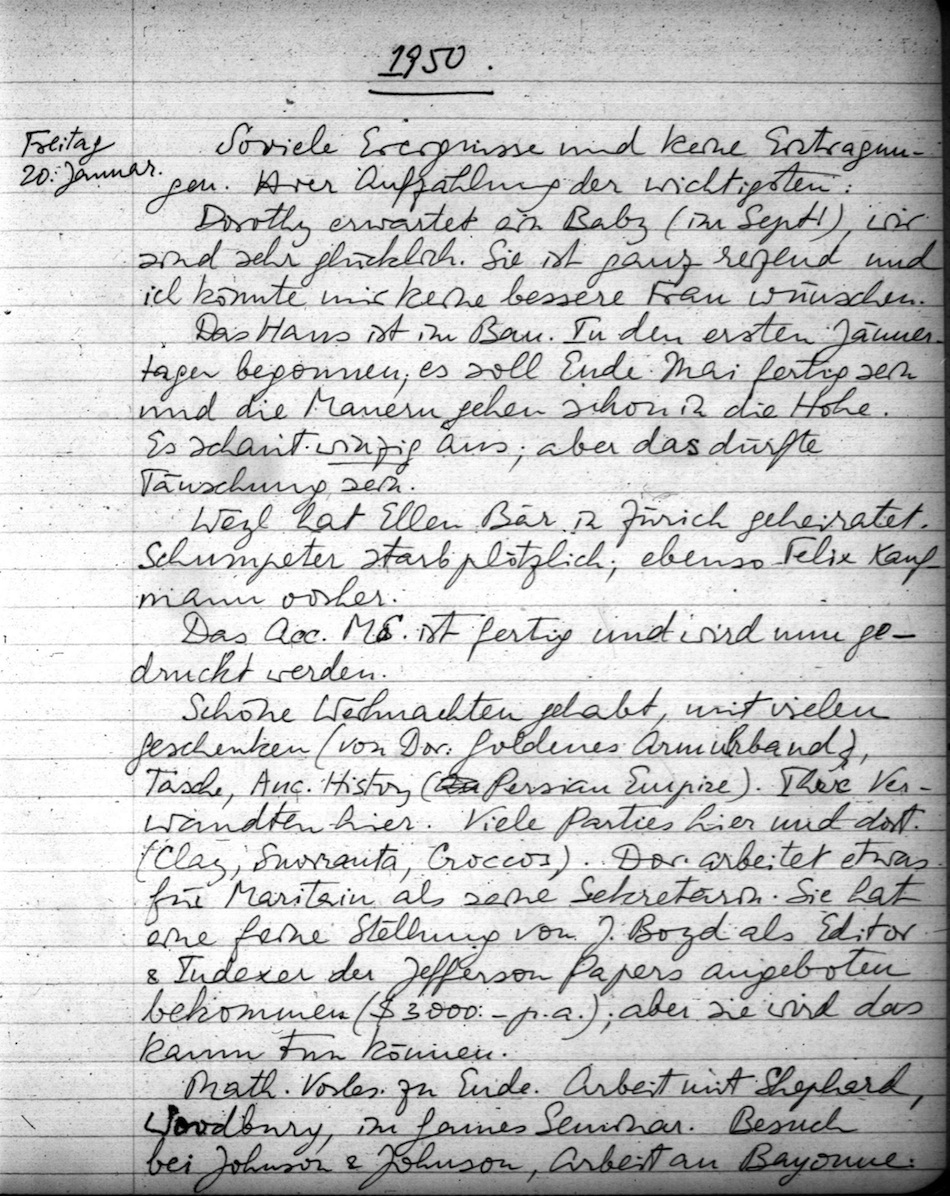 1950.
Freitag
20. Januar.
Soviele Ereignisse und keine Eintragun-
gen. Hier Aufzählung der wichtigsten:
Dorothy erwartet ein Baby (im Sept!), wir
sind sehr glücklich. Sie ist ganz reizend und
ich könnte mir keine bessere Frau wünschen.
Das Haus ist im Bau. In den ersten Jänner-
tagen begonnen; es soll Ende Mai fertig sein
und die Mauern gehen schon in die Höhe.
Es schaut winzig aus; aber das dürfte
Täuschung sein.
Weyl hat Ellen Bär in Zürich geheiratet.
Schumpeter starb plötzlich; ebenso Felix Kauf
mann vorher.
Das Acc. MS. ist fertig und wird nun ge-
druckt werden.
Schöne Weihnachten gehabt, mit vielen
Geschenken (von Dor. goldenes Armuhrband),
Tasche, Anc. History (Persian Empire). Ihre Ver-
wandten hier. Viele Parties hier und dort.
(Clay, Croccos). Dor. arbeitet etwas
für Maritain als seine Sekretärin. Sie hat
eine feine Stellung von J. Boyd als Editor
& Indexer der Jefferson Papers angeboten
bekommen ($3000.- p.a.); aber sie wird das
kaum tun können.
Math. Vorles. zu Ende. Arbeit mit Shephard,
Woodbury, im Games Seminar. Besuch
bei Johnson & Johnson, Arbeit an Bayonne.